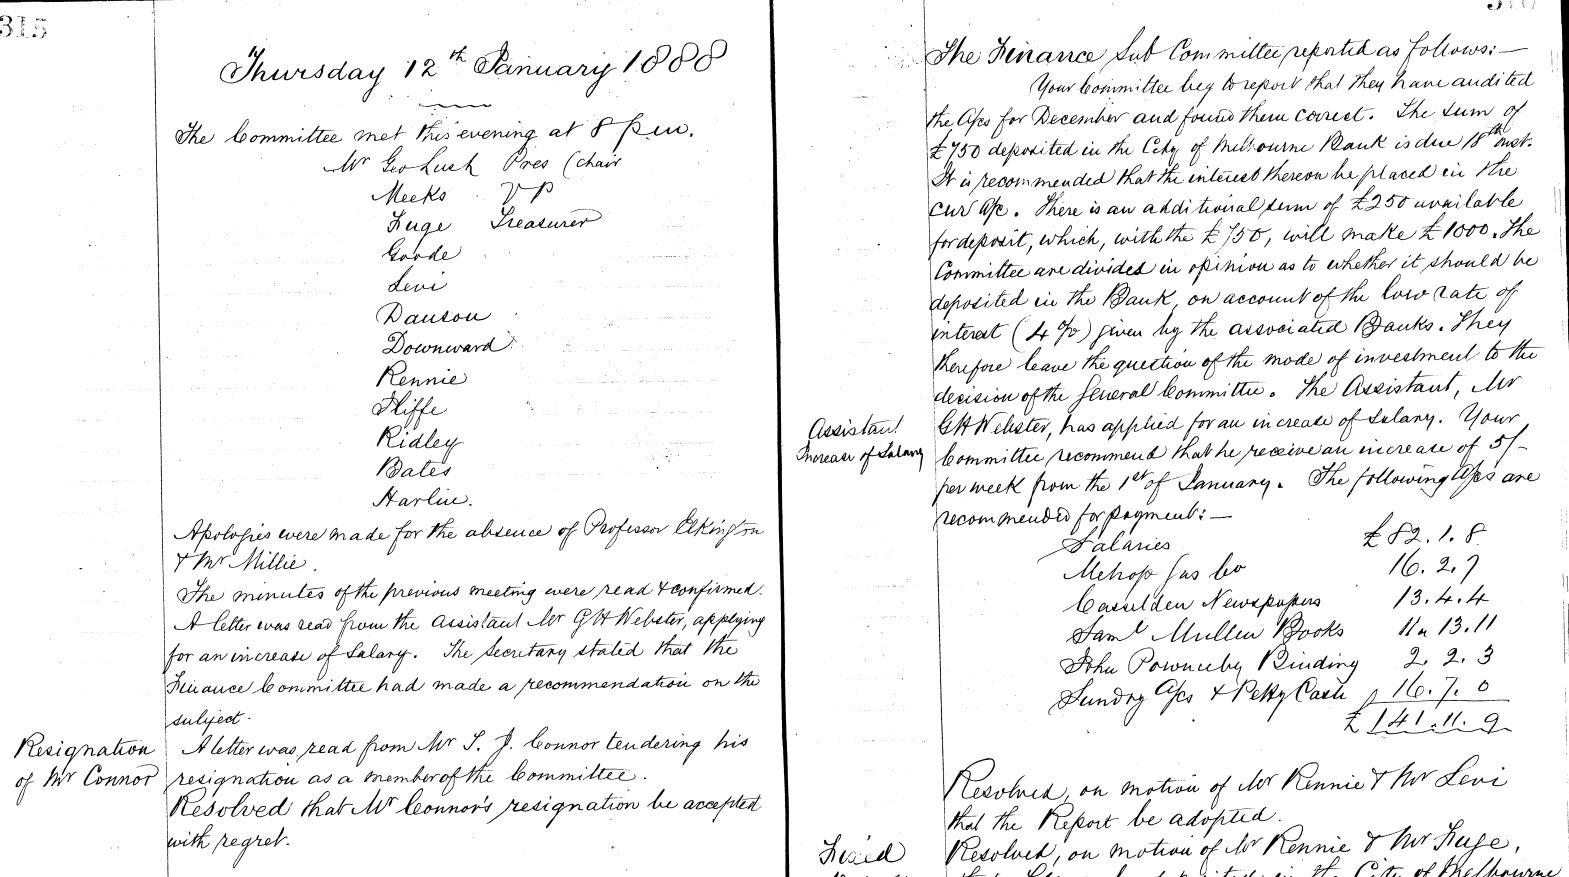 315
Thursday 12th January 1888
The Committee met this evening at 8 p.m.
Mr Geo Lush Pres (chair
Meeks V P
Fuge Treasurer
Goode
Levi
Danson
Downward
Rennie
Iliffe
Ridley
Bates
Harlin.
Apologies were made for the absence of Professor Elkington
& Mr Millie.
The minutes of the previous meeting were read & confirmed.
A letter was read from the Assistant Mr G H Webster, applying
for an increase of Salary. The Secretary stated that the
Finance Committee had made a recommendation on the
subject.
Resignation
of Mr Connor
A letter was read from Mr T. J. Connor tendering his
resignation as a member of the Committee.
Resolved that Mr Connor's resignation be accepted
with regret.
The Finance Sub Committee reported as follows:—
Your Committee beg to report that they have audited
the A/cs for December and found them correct. The sum of
£750 deposited in the City of Melbourne Bank is due 18th inst.
It is recommended that the interest thereon be placed in the
cur a/c. There is an additional sum of £250 available
for deposit, which, with the £750, will make £1000. The
Committee are divided in opinion as to whether it should be
deposited in the Bank, on account of the low rate of
interest (4 %) given by the associated Banks. They
therefore leave the question of the mode of investment to the
decision of the General Committee. The Assistant, Mr
Assistant
Increase of Salary
G H Webster, has applied for an increase of Salary. Your
Committee recommend that he receive an increase of 5/-
per week from the 1st of January. The following A/cs are
recommended for payment:—
Salaries £82.1.8
Metrop Gas Co 16.2.7
Casselden Newspapers 13.4.4
Saml Mullen Books 11.13.11
John Pownceby Binding 2.2.3
Sundry A/cs & Petty Cash 16.7.0
£141.11.9
Resolved, on motion of Mr Rennie & Mr Levi
that the Report be adopted.
Fixed
Resolved, on motion of Mr Rennie & Mr Fuge,
in the City of Melbourne